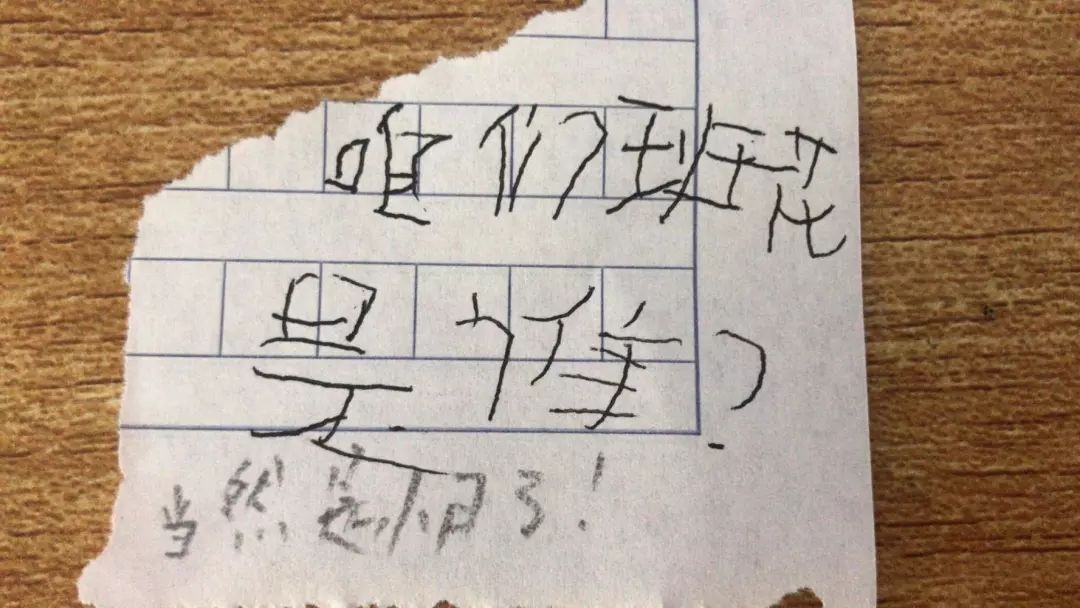 咱们班花
是谁?
当然是了!